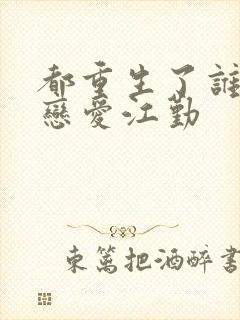 都重生了誰
戀愛江勤
東籬把酒醉書